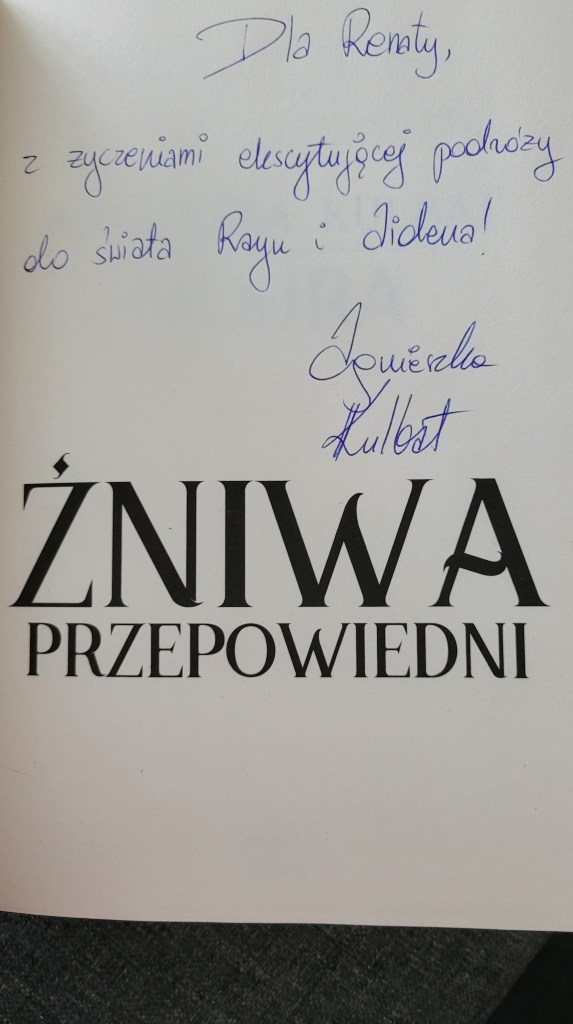 Dla Renaty,
z życzeniami ekscytującej podróży
do świata Rayn i Jidena!
Agnieszka
Kulbat
ŹNIWA
PRZEPOWIEDNI